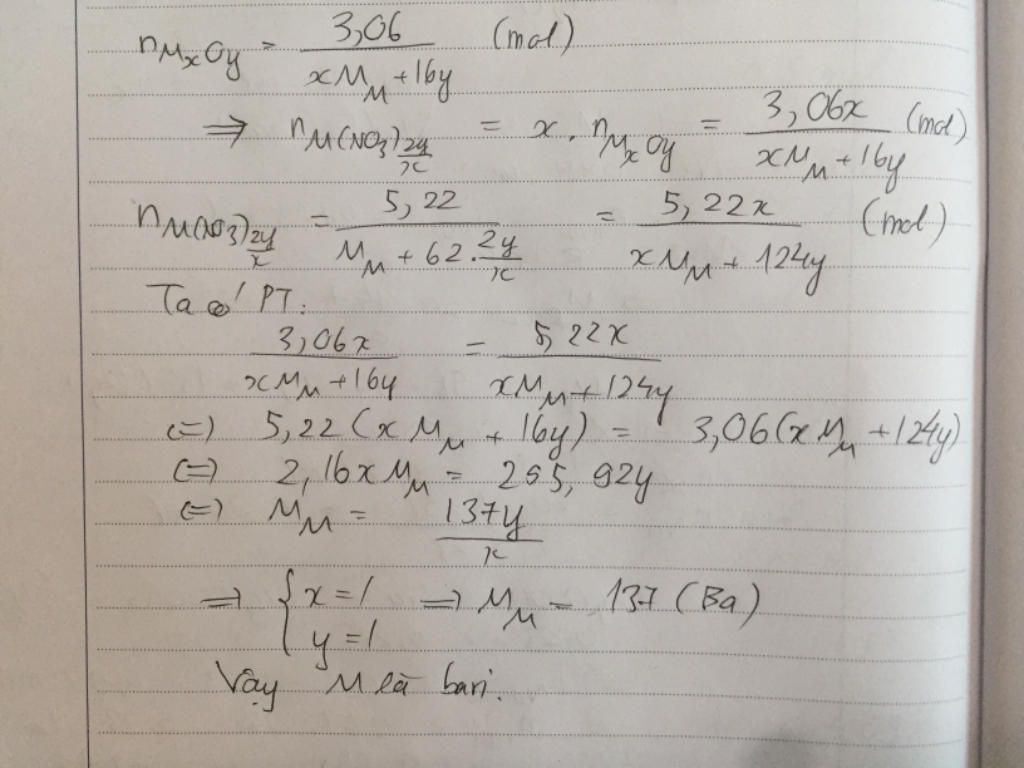 nMxOy = 3,06 / (xMM + 16y) (mol)
⇒ nM(NO3)2y/x = x . nMxOy = 3,06x / (xMM + 16y) (mol)
nM(NO3)2y/x = 5,22 / (MM + 62 . 2y/x) = 5,22x / (xMM + 124y) (mol)
Ta có PT:
3,06x / (xMM + 16y) = 5,22x / (xMM + 124y)
(=) 5,22(xMM + 16y) = 3,06(xMM + 124y)
(=) 2,16xMM = 295,92y
(=) MM = 137y / x
⇒ { x = 1 ⇒ MM = 137 (Ba)
y = 1
Vậy M là bari.